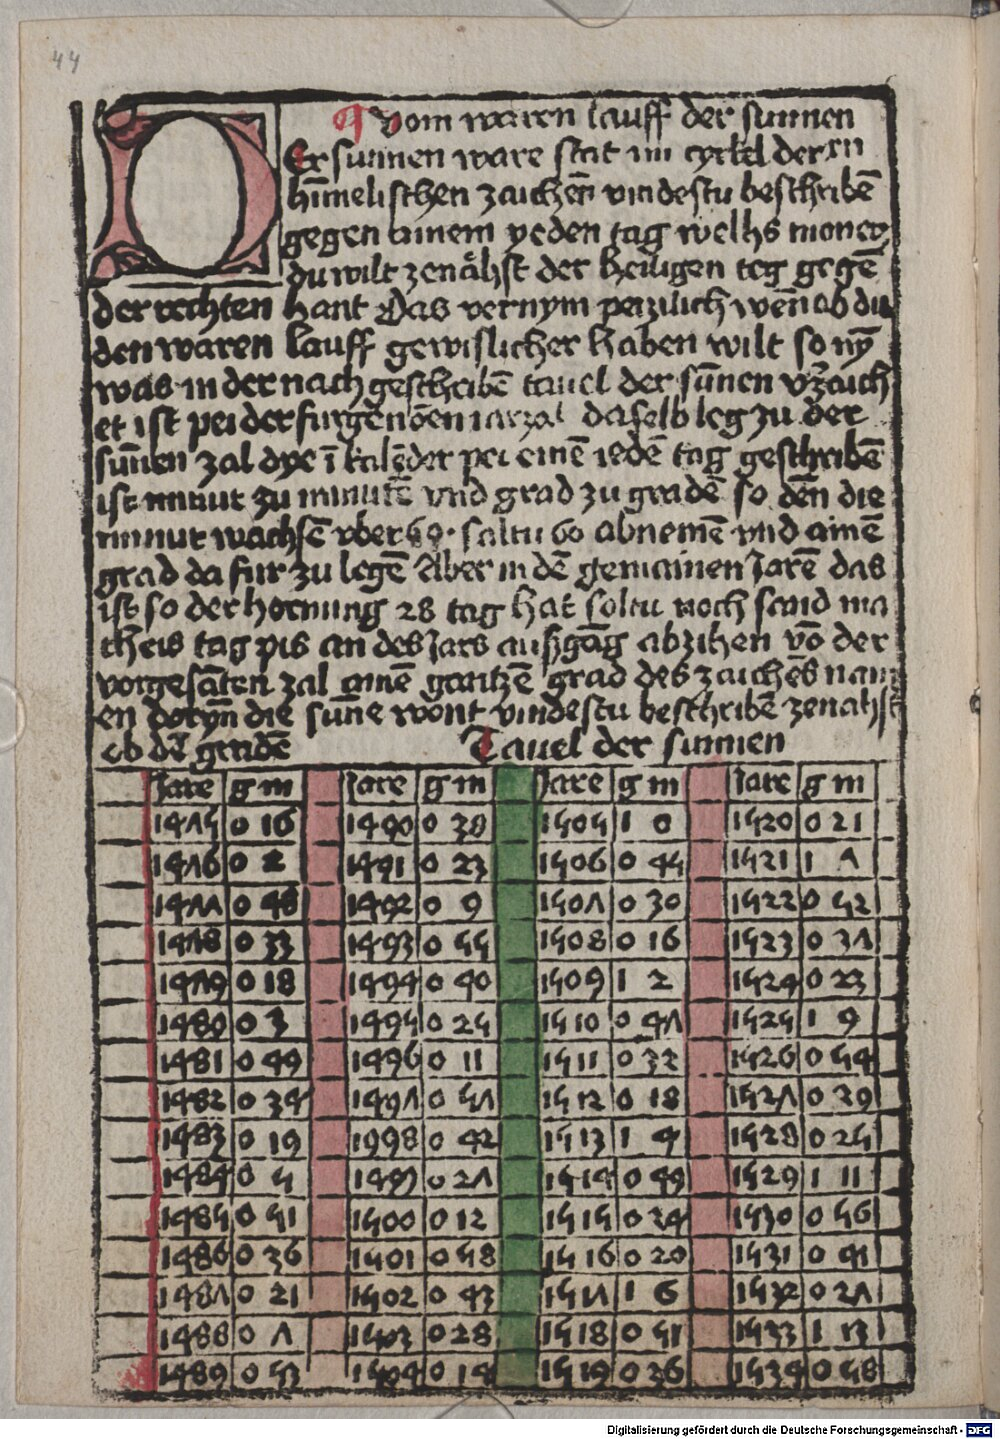 44
Vom waren lauff der sunnen
DEr sunnen ware stat im cyrkel der xii
him̄elischen zaichen̄ vindestu beschribē
gegen ainem yeden tag welhs monets
du wilt zenähst der heiligen teg gegē
der rechten hant Das vernym wen̄ ab du
den waren lauff gewislicher haben wilt so nȳ
was in der nach geschribē tauel der sun̄en vzaich
et ist pei der furgenōen iarzal daselb leg zu der
sun̄en zal dye ī kalēder pei einē iedē tag geschribē
ist minut zu minutē vnd grad zu gradē so dēn die
minut wachsē vber 60 soltu 60 abnemē vnd ainē
grad da fur zu legē Aber in dē gemainen Jarē das
ist so der hornung 28 tag hat soltu noch sand ma
theis tag pis an des Jars ausgāg abzihen vō der
vorgesāten zal ainē gantzē grad des zaichēs nam
en doryn̄ die sun̄e wont vindestu beschribē zenahst
ob dē gradē Tauel der sunnen
Jare g m Jare g m Jare g m Jare g m
1475 0 16 1490 0 38 1505 1 0 1520 0 21
1476 0 2 1491 0 23 1506 0 45 1521 1 7
1477 0 48 1492 0 9 1507 0 30 1522 0 52
1478 0 33 1493 0 55 1508 0 16 1523 0 37
1479 0 18 1494 0 40 1509 1 2 1524 0 23
1480 0 3 1495 0 25 1510 0 47 1525 1 9
1481 0 49 1496 0 11 1511 0 32 1526 0 54
1482 0 34 1497 0 57 1512 0 18 1527 0 39
1483 0 19 1998 0 42 1513 1 4 1528 0 25
1484 0 5 1499 0 27 1514 0 49 1529 1 11
1485 0 51 1500 0 12 1515 0 34 1530 0 56
1486 0 36 1501 0 58 1516 0 20 1531 0 41
1487 0 21 1502 0 43 1517 1 6 1532 0 27
1488 0 7 1503 0 28 1518 0 51 1533 1 13
1489 0 53 1504 0 14 1519 0 36 1534 0 58
Digitalisierung gefördert durch die Deutsche Forschungsgemeinschaft - DFG